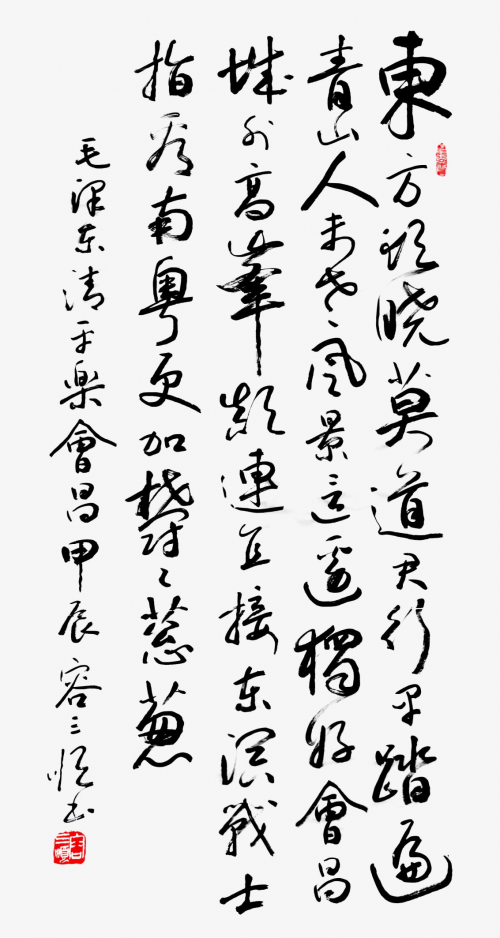 東方欲晓莫道君行早踏遍
青山人未老風景这邊獨好會昌
城外高峯颠連直接东溟戰士
指看南粤更加欝〻葱葱
毛泽东清平楽會昌甲辰容三书